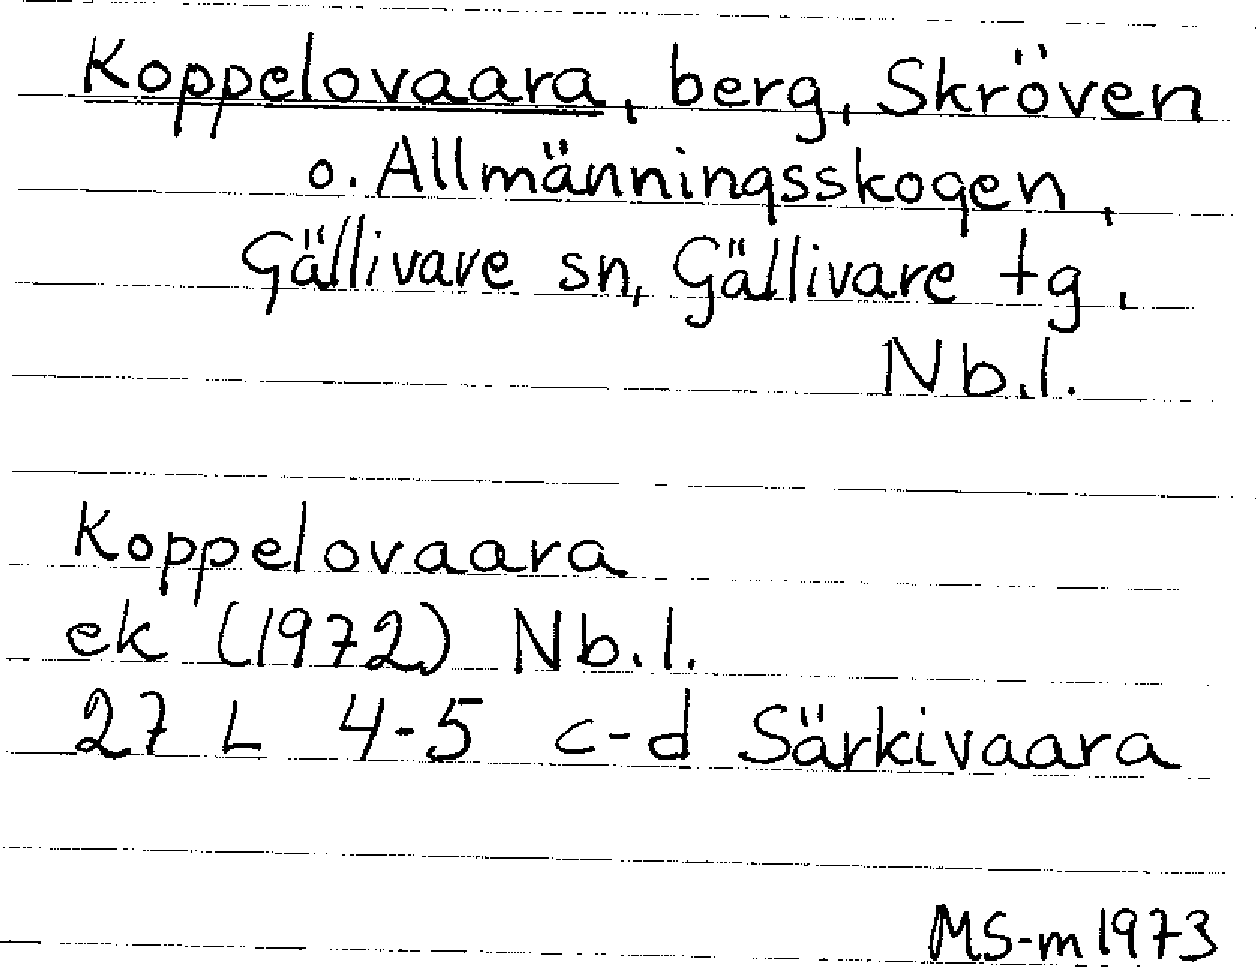 Koppelovaara, berg, Skröven
o. Allmänningsskogen,
Gällivare sn, Gällivare tg,
Nb.l.
Koppelovaara
ek (1972) Nb.l.
27 L 4-5 c-d Särkivaara
MS-m 1973